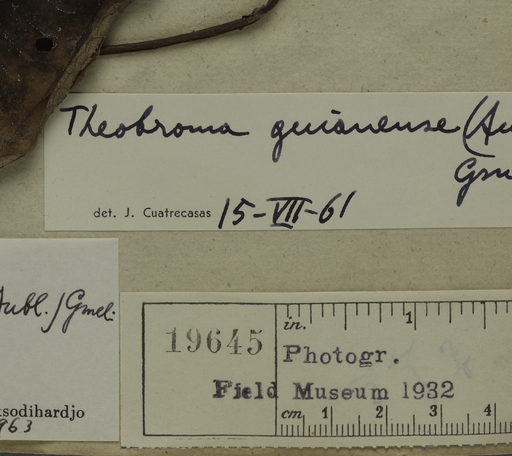 Theobroma guianense (Au
Gm
det. J. Cuatrecasas 15-VII-61
Aubl.) Gmel.
sodihardjo
963
19645
in. 1
Photogr.
Field Museum 1932
cm 1 2 3 4